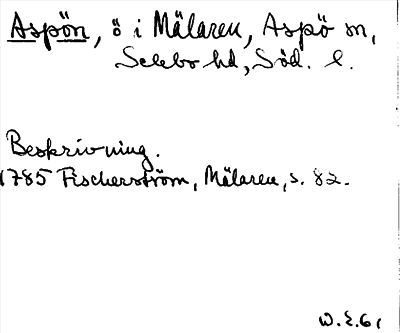 Aspön, ö i Mälaren, Aspö sn,
Selebo hd, Söd. l.
Beskrivning.
1785 Fischerström, Mälaren, s. 82.
W.E.61